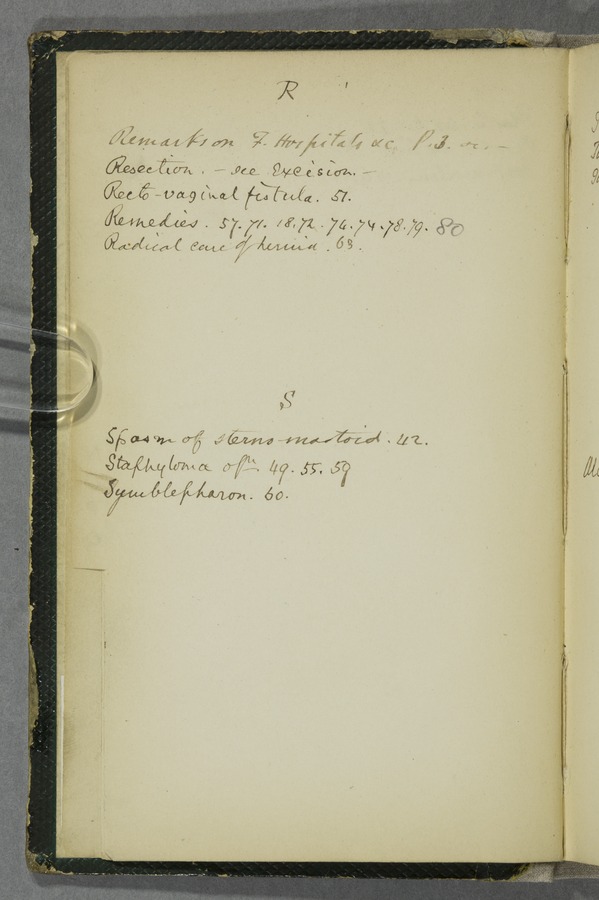 R
Remarks on F. Hospitals &c. P. 3.
Resection. - see Excision. -
Recto-vaginal fistula. 51.
Remedies. 57. 71. 18. 72. 76. 74. 78. 79. 80
Radical cure of hernia. 63.
S
Spasm of sterno-mastoid. 42.
Staphyloma opn. 49. 55. 59
Symblepharon. 60.